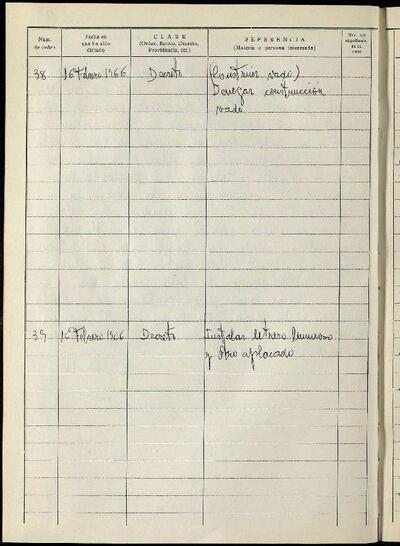 Núm. de orden
Fecha en que ha sido dictado
CLASE
(Orden, Bando, Decreto, Providencia, etc.)
REFERENCIA
(Materia o persona interesada)
38 16 Febrero 1966 Decreto (Construir vado)
Denegar construcción
vado
39 16 Febrero 1966 Decreto Instalar letrero luminoso
y otro aplacado